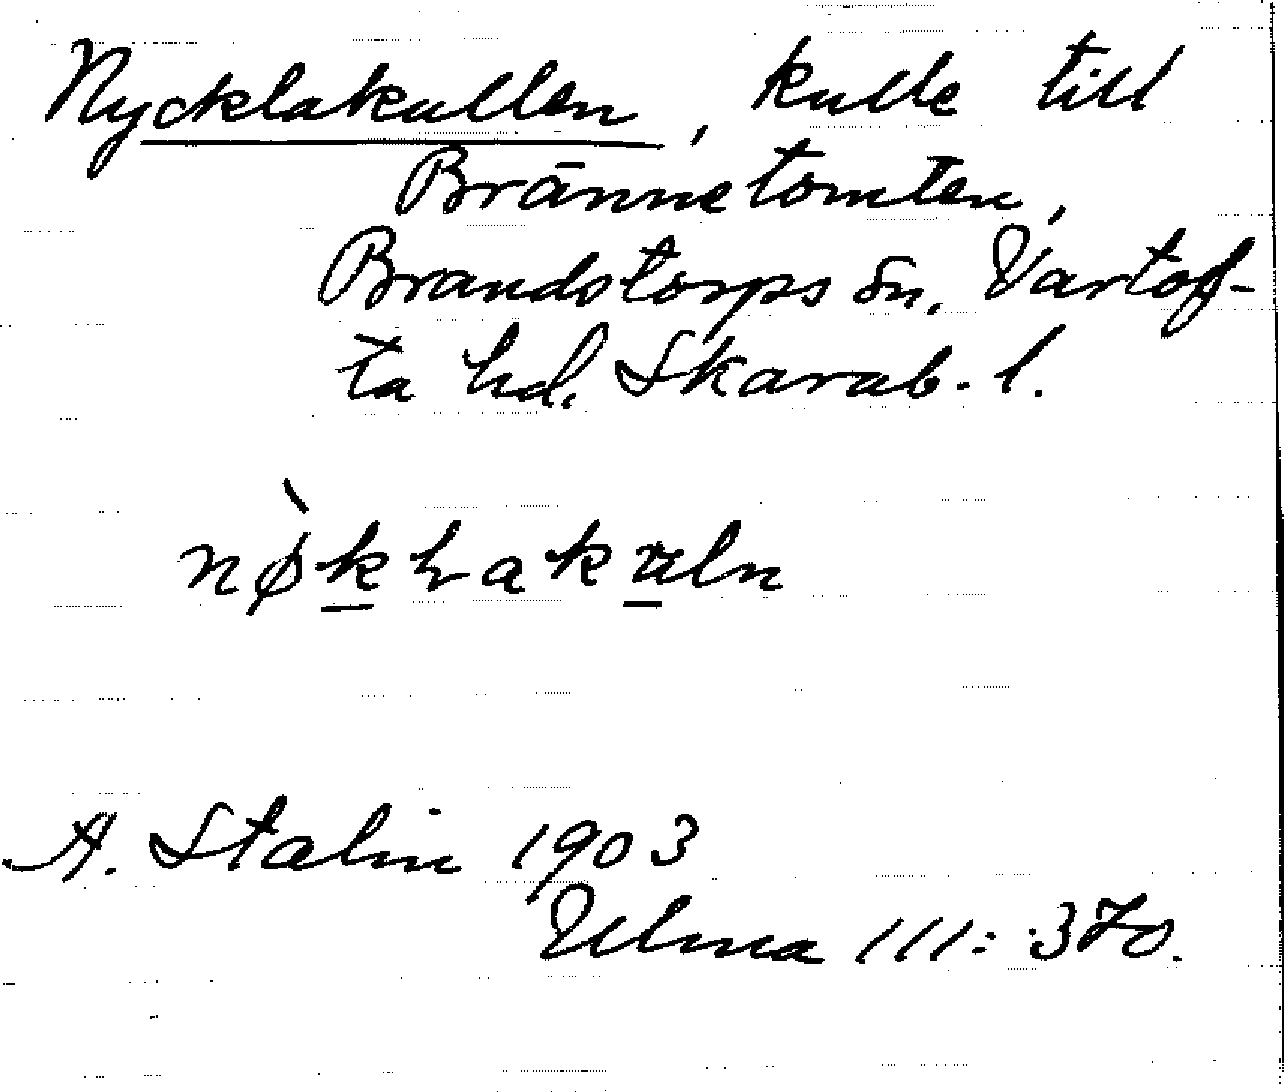 Nycklakullen, kulle till
Brännetomten,
Brandstorps sn. Vartof-
ta hd. Skarab. l.
A. Stalin 1903
Ulma 111: 370.